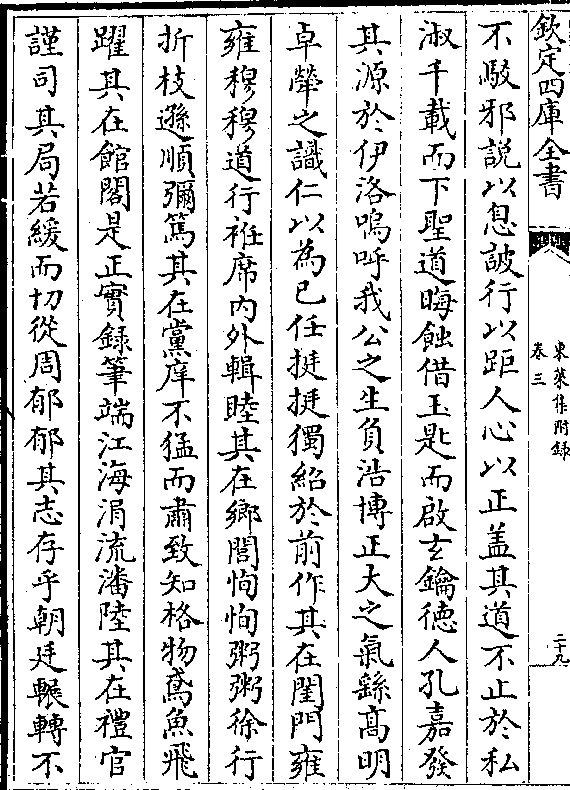 欽定四庫全書
東萊集附録
卷三
二十九
不駮邪說以息詖行以距人心以正盖其道不止於私
淑千載而下聖道晦蝕借玉匙而啟玄鑰徳人孔嘉發
其源於伊洛嗚呼我公之生負浩博正大之氣繇髙明
卓犖之識仁以為已任挺挺獨紹於前作其在閨門雍
雍穆穆道行袵席内外輯睦其在鄉閭恂恂粥粥徐行
折枝遜順彌篤其在黨庠不猛而肅致知格物鳶魚飛
躍其在館閣是正實録筆端江海涓流潘陸其在禮官
謹司其局若緩而切從周郁郁其志存乎朝廷輾轉不